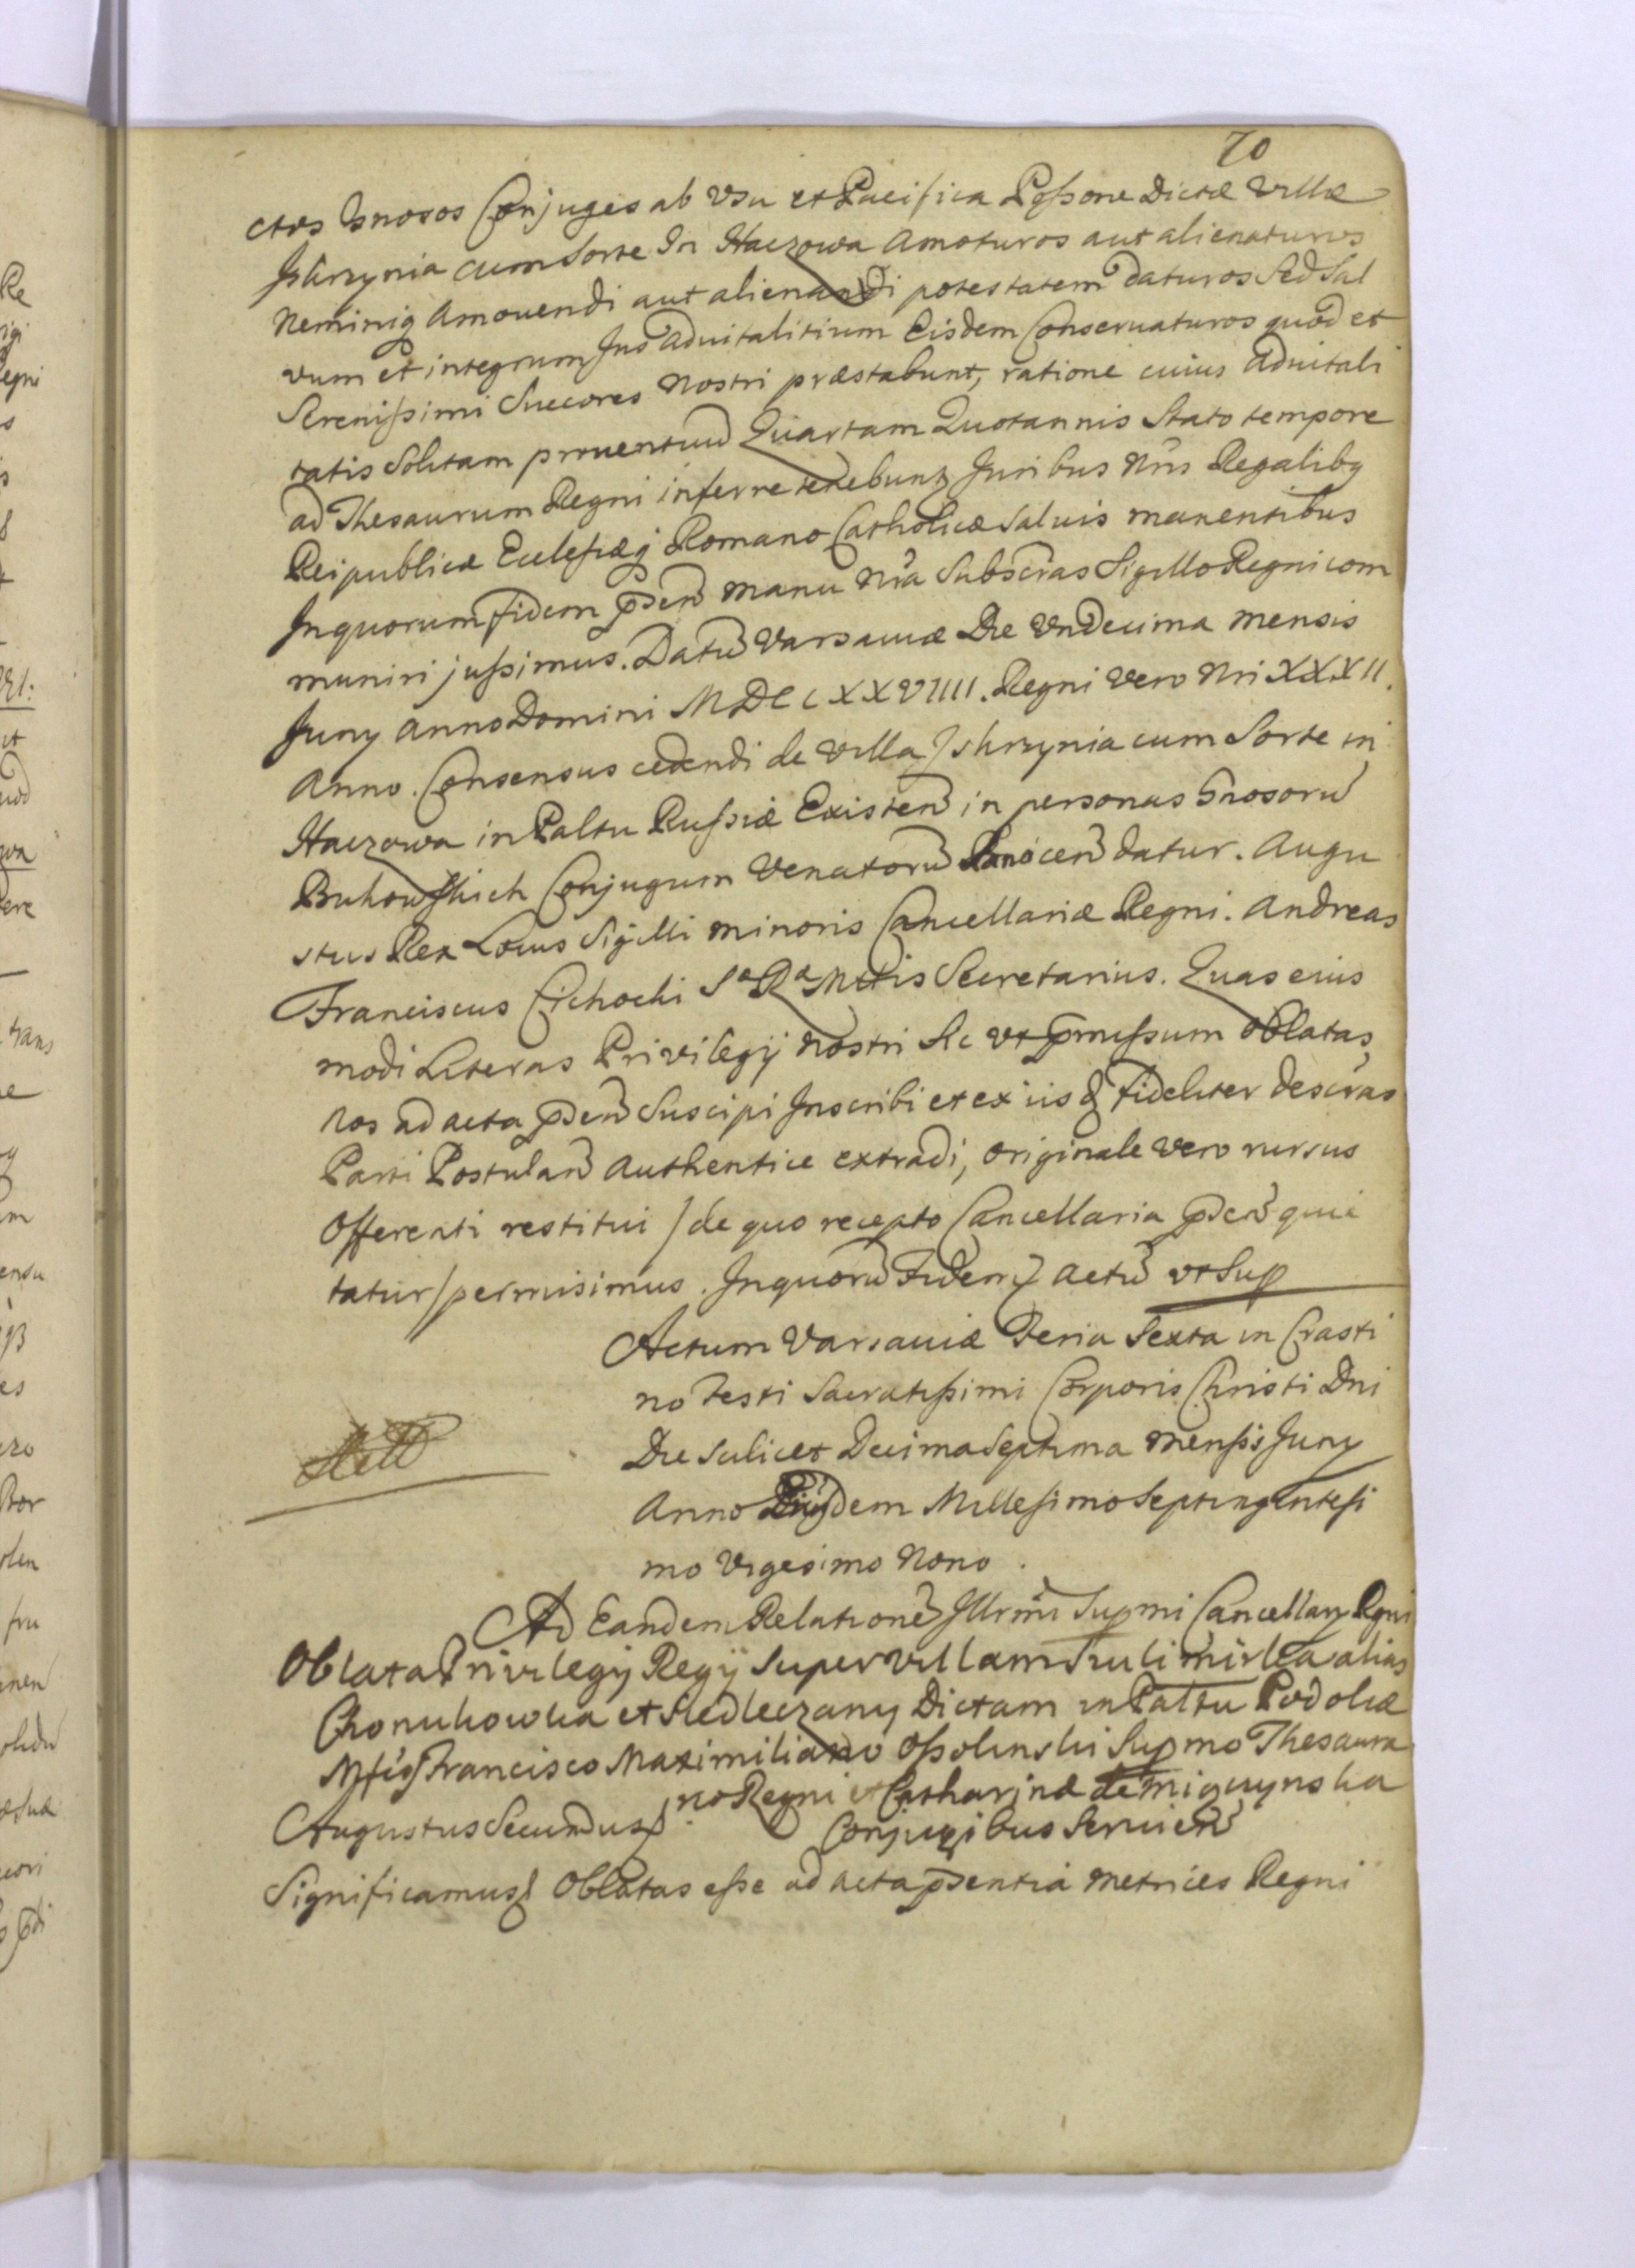 70
ctos Gnosos Conjuges ab Vsu et Pacifica Possone Dictæ Villæ
Iskrzynia cum Sorte In Haczowa Amoturos aut alienaturos
Neminiq Amouendi aut alienandi potestatem daturos Sed Sal
vum et integrum Jus aduitalitium Eisdem Conseruaturos quod et
Serenissimi Succores Nostri præstabunt, ratione cuius aduitali
tatis Solitam prouentuu Quartam Quotannis Stato tempore
ad Thesaurum Regni inferre tenebuntz Juribus Nris Regalibq
Reipublicæ Eclesiæq Romano Catholicæ Saluis manentibus
In quorum fidem pden manu Nra Subscras Sigillo Regni com
muniri jussimus. Datu Varsauiæ Die Vndecima mensis
Juny Anno Domini MDCCXXVIIII. Regni Vero Nri XXXII.
Anno. Consensus cedendi de Villa Iskrzynia cum Sorte in
Haczowa in Paltu Russiæ Existen in personas Gnosoru
Bukowskich Conjugum Venatoru Sanocen datur. Augu
stus Rex Locus Sigilli minoris Cancellariæ Regni. Andreas
Franciscus Cichocki Sa Ra Mttis Secretarius. Quas eius
modi Literas Privilegij Nostri Sic vt pmissum oblatas
Nos ad acta pden Suscipi Inscribi et ex iis fideliter descras
Parti Postulan Authentice extradi, originale vero rursus
Offerenti restitui / de quo recepto Cancellaria pden quie
tatur / permisimus. In quoru Fidem Actu vt Sup
Actum Varsauiæ Feria Sexta in Crasti
no Festi Sacratissimi Corporis Christi Dni
Die Scilicet Decima Septima mensis Juny
Anno Eiusdem Millesimo Septingentesi
mo Vigesimo Nono.
Ad Eandem Relatione Illrmi Supmi Cancellary Rgni
Oblata Privilegij Regij Super Villam Suli mirka alias
Chonukowka et Siedleczany Dictam in Paltu Podoliæ
Mfiis Francisco Maximiliano Ossolinski Supmo Thesaura
rio Regni et Catharinæ de Miączynska
Augustus Secundus Conjugibus Seruien
Significamus Oblatas esse ad acta psentia Metrices Regni